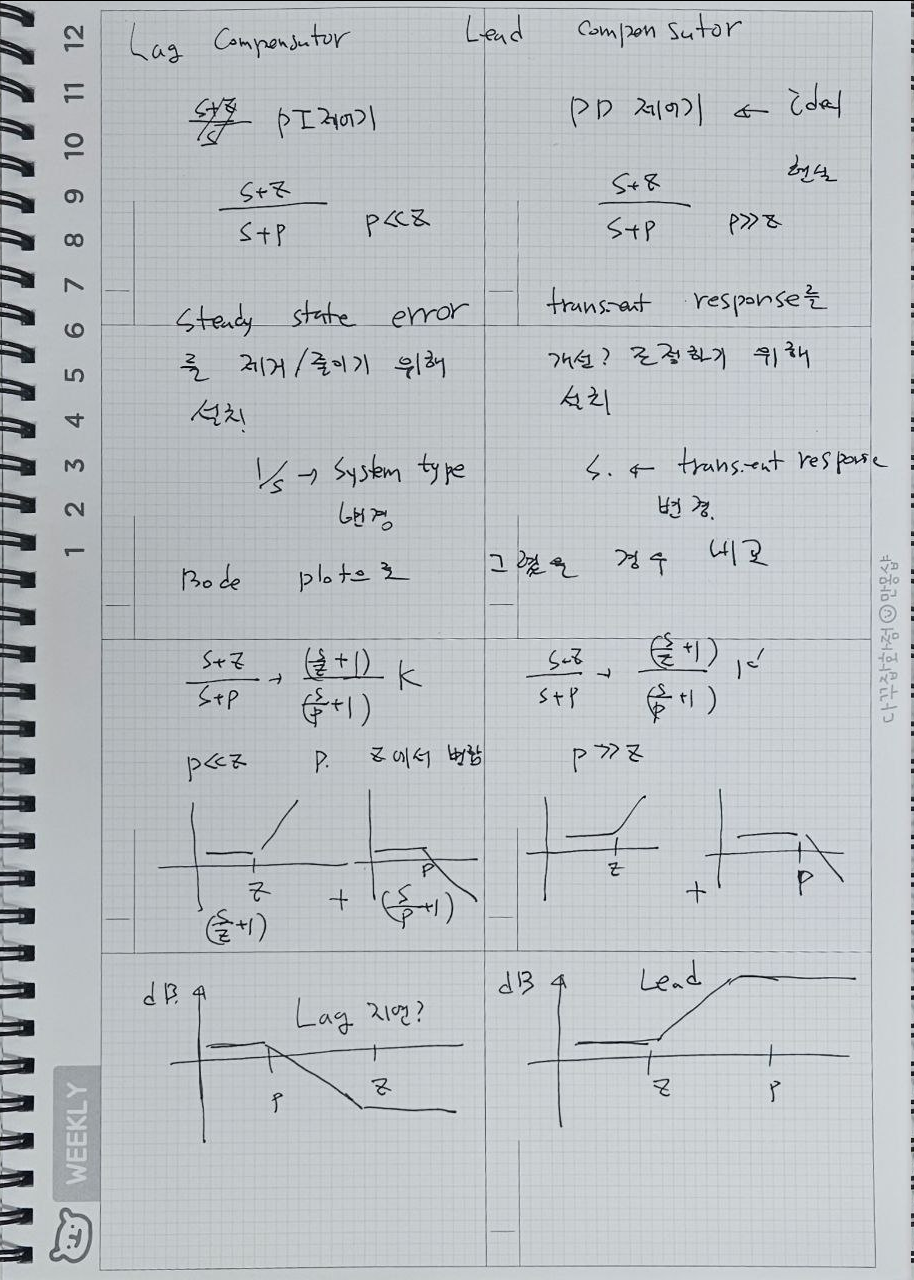 Lag Compensutor
S+Z/S PI 제어기
S+Z
S+P
P<<Z
Steady state error
를 제거/줄이기 위해
설치!
1/s → System type
변경
Bode plot으로
S+Z/S+P → (S/Z+1)/(S/P+1) K
P<<Z P. Z에서 변함
Z
P
(S/Z+1) + (S/P+1)
dB.
Lag 지연?
P
Z
Lead compensutor
PD 제어기 ← ideal
현실
S+Z
S+P
P>>Z
transient response를
개선? 조절하기 위해
설치
S. ← transient response
변경.
그렸을 경우 비교
S+Z/S+P → (S/Z+1)/(S/P+1) K
P>>Z
Z + P
dB
Lead
Z
P
12
11
10
9
8
7
6
5
4
3
2
1
WEEKLY